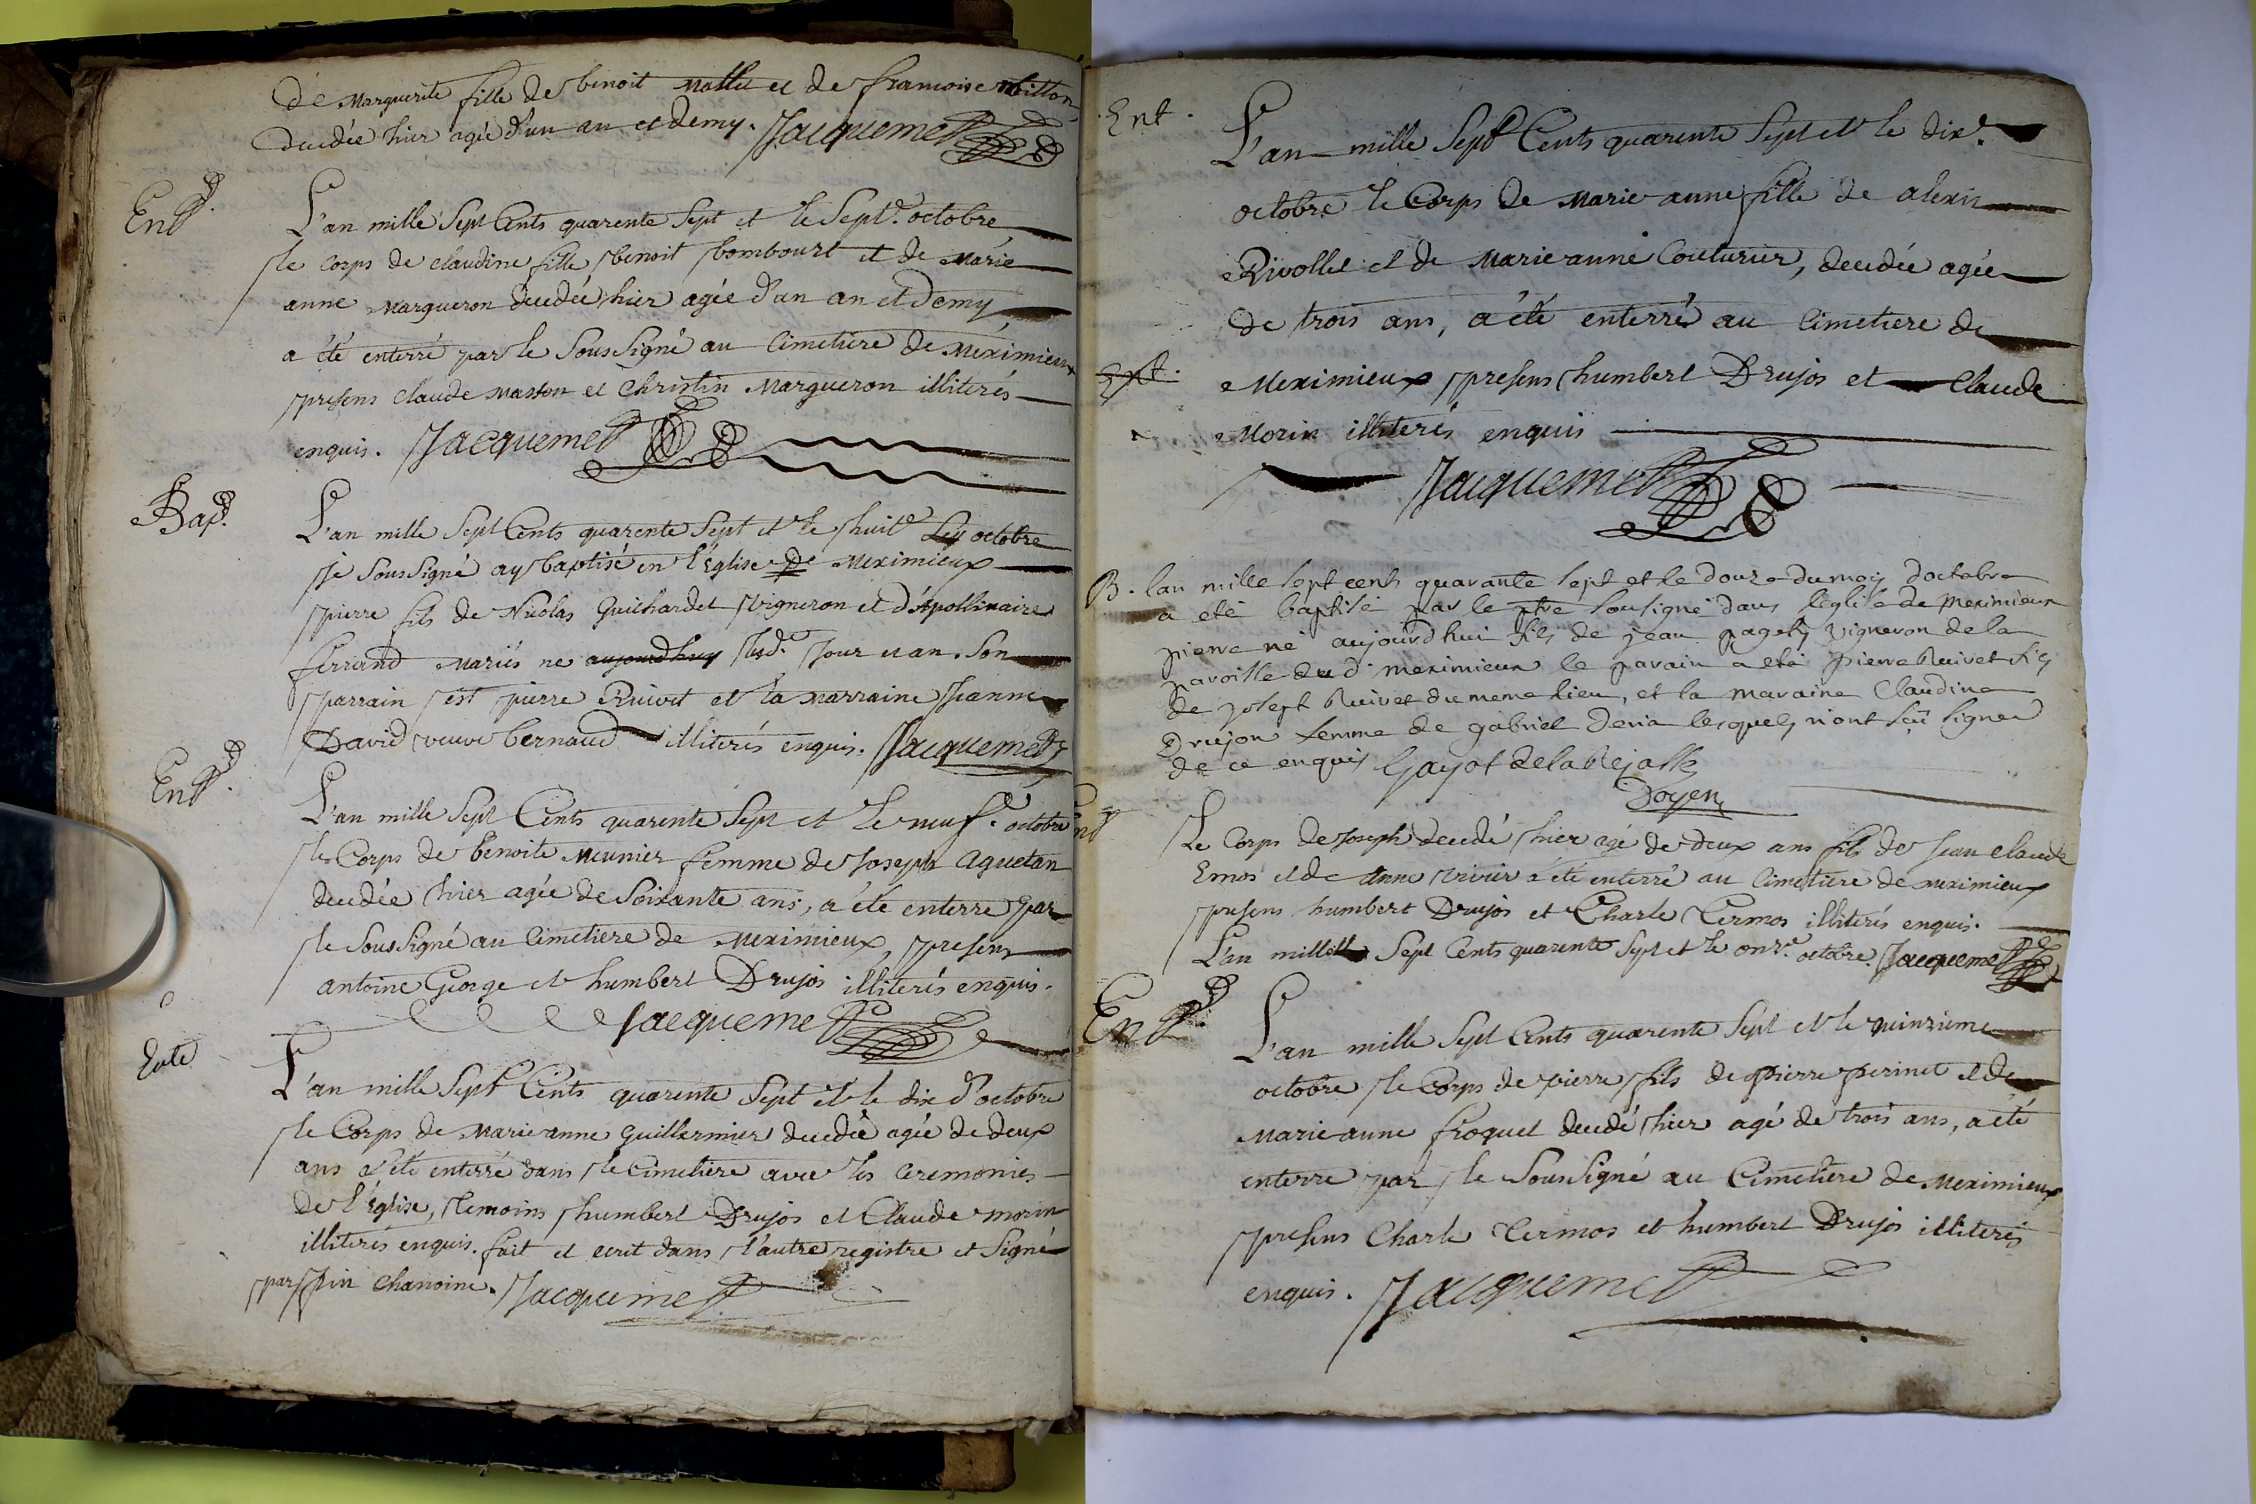 de Marguerite fille de benoit Mallet et de francoise
decedée hier agée d'un an et demy. Jacquemet
Ent.
L'an mille Sept Cents quarente Sept et le Sept.e octobre
le corps de claudine fille benoit bombourt et de Marie
anne Margueron decedée hier agée d'un an et Demy
a été enterré par le Soussigné au Cimetiere de Meximieux
presens claude Masson et Christin Margueron illiterés
enquis. Jacquemet
Bap.
L'an mille Sept Cents quarente Sept et le huit.e octobre
je Soussigné ay baptisé en l'Eglise de Meximieux
pierre fils de Nicolas Guichardet vigneron et d'Apollinaire
ferrand Mariés né aujourdhuy Jour et an. Son
parrain est pierre Ruivet et la marraine Jeanne
David veuve bernaud illiterés enquis. Jacquemet
Ent.
L'an mille Sept Cents quarente Sept et le neuf.e octobre
le Corps de benoite Meunier femme de Joseph Aguetan
decedée hier agée de Soixante ans, a été enterre par
le Soussigné au Cimetiere de Meximieux, presens
antoine George et humbert Drujos illiterés enquis.
Jacquemet
Ente
L'an mille Sept Cents quarente Sept et le dix d'octobre
le Corps de Marie anne Guillermier decedée agée de deux
ans a été enterré dans le Cimetiere avec les Ceremonies
de l'Eglise, temoins humbert Drujos et Claude morin
illiterés enquis. fait et ecrit dans l'autre registre et Signé
par Jin Chanoine. Jacquemet
Ent.
L'an mille Sept Cents quarente Sept et le dix.e
octobre le Corps de Marie anne fille de alexis
Rivollet et de Marie anne Couturier, decedée agée
de trois ans, a été enterré au Cimetiere de
Meximieux presens humbert Drujos et Claude
Morin illiterés enquis
Jacquemet
B. lan mille sept cents quarante sept et le douze du mois doctobre
a eté baptisé par le ptre sousigné dans leglise de meximieux
pierre né aujourdhui fils de jean pagets vigneron de la
paroisse dud meximieux le parain a eté pierre Ruivet fils
de joseph Ruivet du meme lieu, et la maraine Claudine
Driejon femme de gabriel Deria lesquels n'ont sçû signer
de ce enquis Gayot de la Rejasse
Doyen
Ent
Le Corps de Joseph decedé hier agé de deux ans fils de Jean claude
Emos et de Anne vivier a été enterré au Cimetiere de meximieux
presens humbert Drujos et Charle Cermos illiterés enquis.
L'an mille Sept Cents quarente Sept et le onz.e octobre. Jacquemet
Ent.
L'an mille Sept Cents quarente Sept et le quinzieme
octobre le Corps de pierre fils de pierre perinet et de
Marie anne froquet decedé hier agé de trois ans, a été
enterre par le SousSigné au Cimetiere de Meximieux
presens Charle Cermos et humbert Drujos illiterés
enquis. Jacquemet